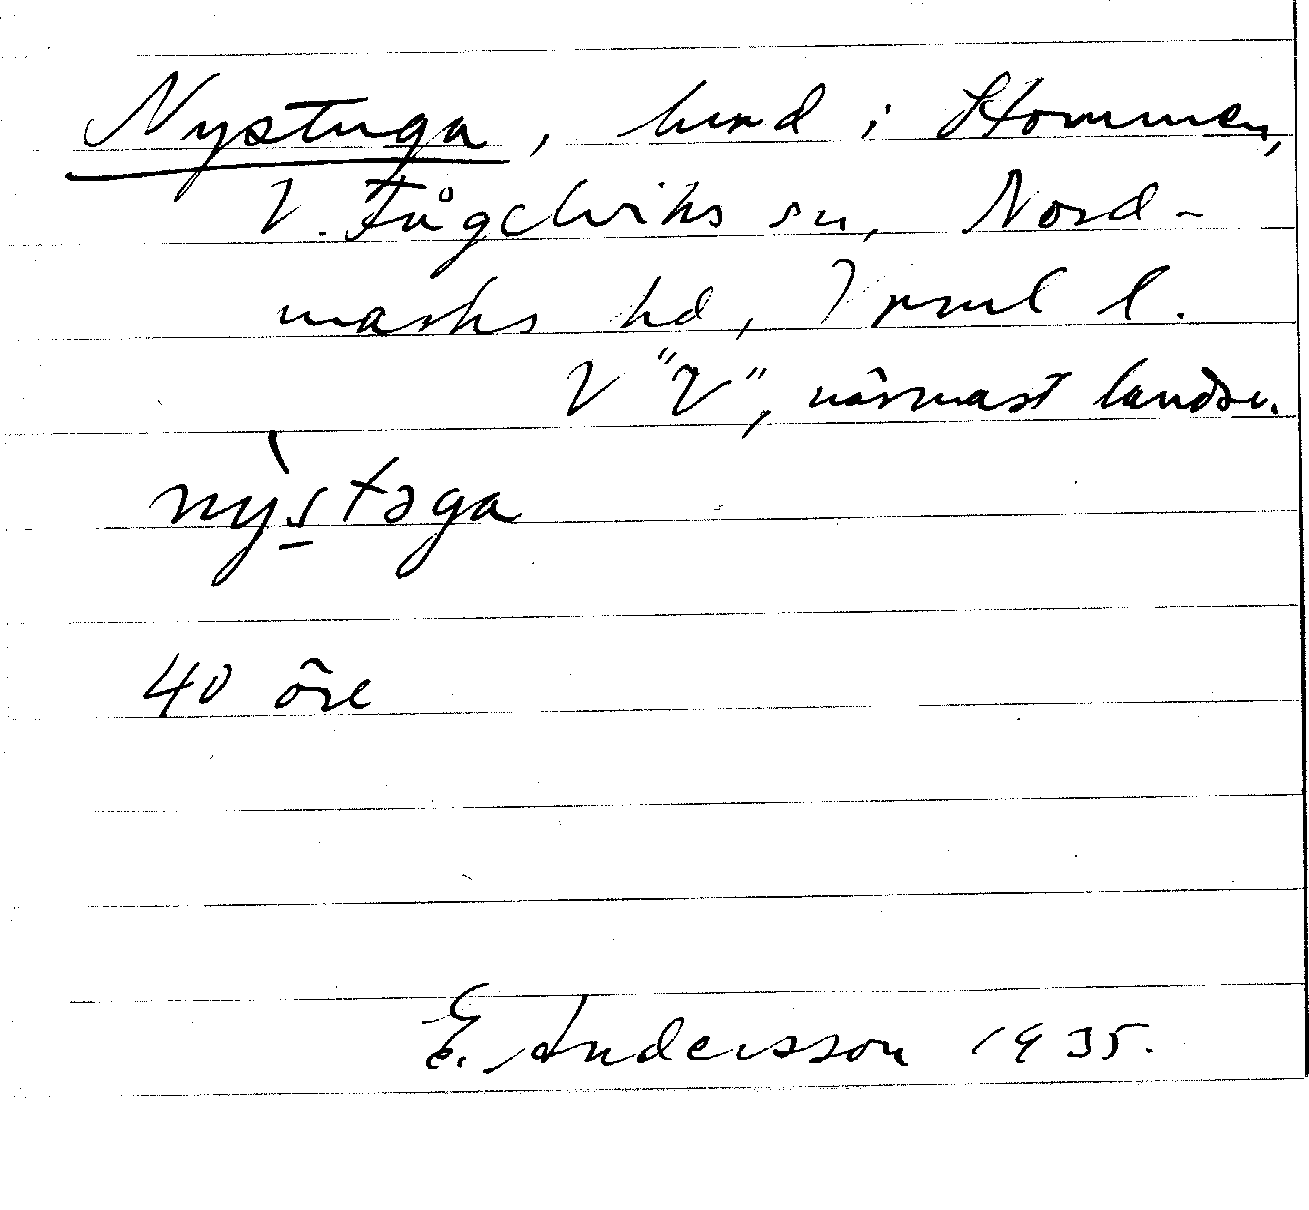 Nystuga, hmd i Stommen,
V. Fågelviks sn, Nord-
marks hd, Vrml l.
V "V", närmast landsv.
nỳstəga
40 öre
E. Andersson 1935.